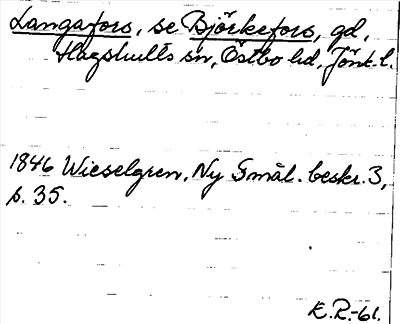 Langafors, se Björkefors, gd,
Hagshults sn, Östbo hd, Jönk. l.
1846 Wieselgren, Ny Smål. beskr. 3,
s. 35.
E.R.-61.